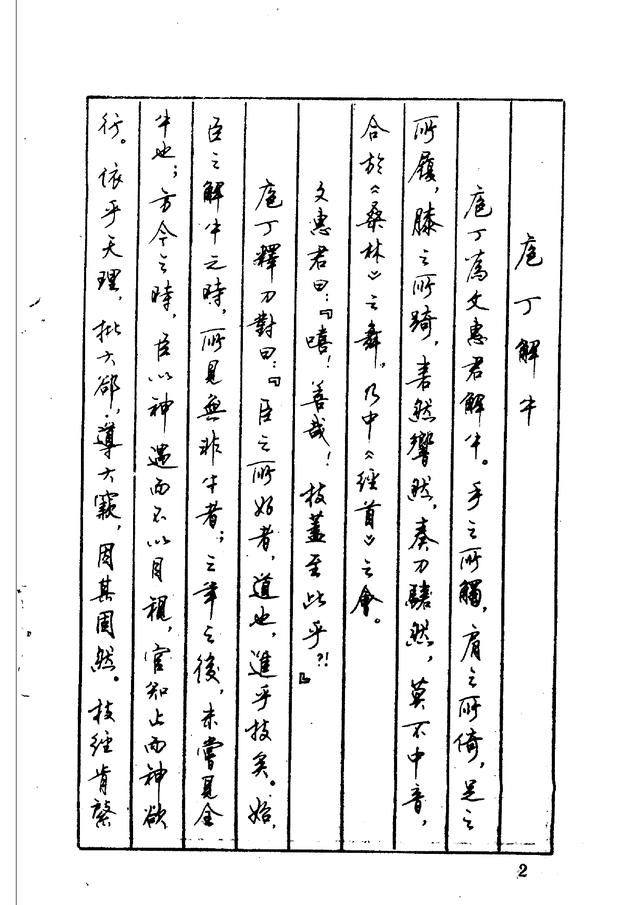 庖丁解牛
庖丁為文惠君解牛。手之所觸，肩之所倚，足之
所履，膝之所踦，砉然響然，奏刀騞然，莫不中音，
合於《桑林》之舞，乃中《經首》之會。
文惠君曰：『嘻！善哉！技蓋至此乎？！』
庖丁釋刀對曰：『臣之所好者，道也，進乎技矣。始，
臣之解牛之時，所見無非牛者；三年之後，未嘗見全
牛也；方今之時，臣以神遇而不以目視，官知止而神欲
行。依乎天理，批大郤，導大窾，因其固然。技經肯綮
2